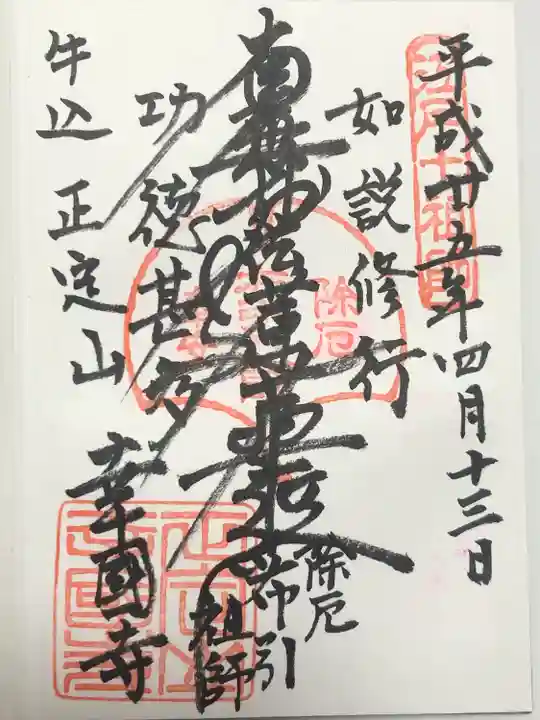 平成廿五年四月十三日
如説修行
南無妙法蓮華経
除厄
布引
祖師
功徳甚多
牛込 正定山
幸國寺
除厄